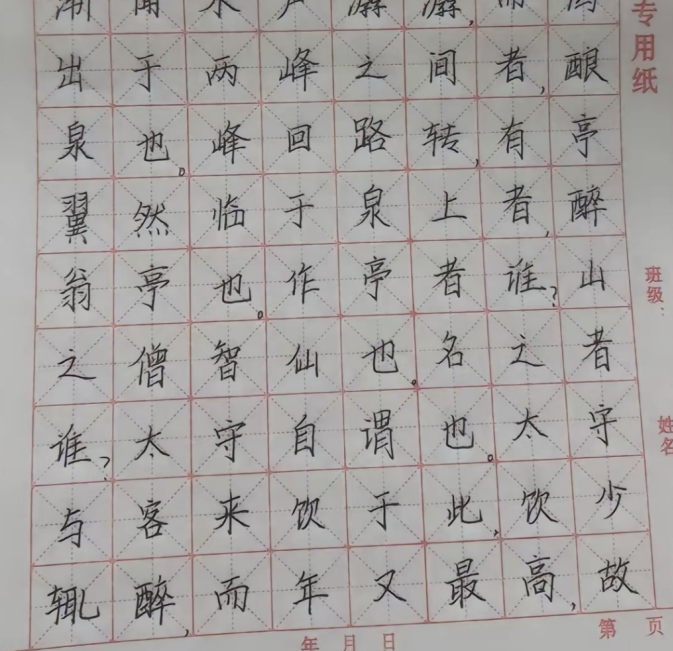 渐闻水声潺潺,而泻
出于两峰之间者,酿
泉也。峰回路转,有亭
翼然临于泉上者,醉
翁亭也。作亭者谁?山
之僧智仙也。名之者
谁?太守自谓也。太守
与客来饮于此,饮少
辄醉,而年又最高,故
专用纸
班级:
姓名
年 月 日
第 页